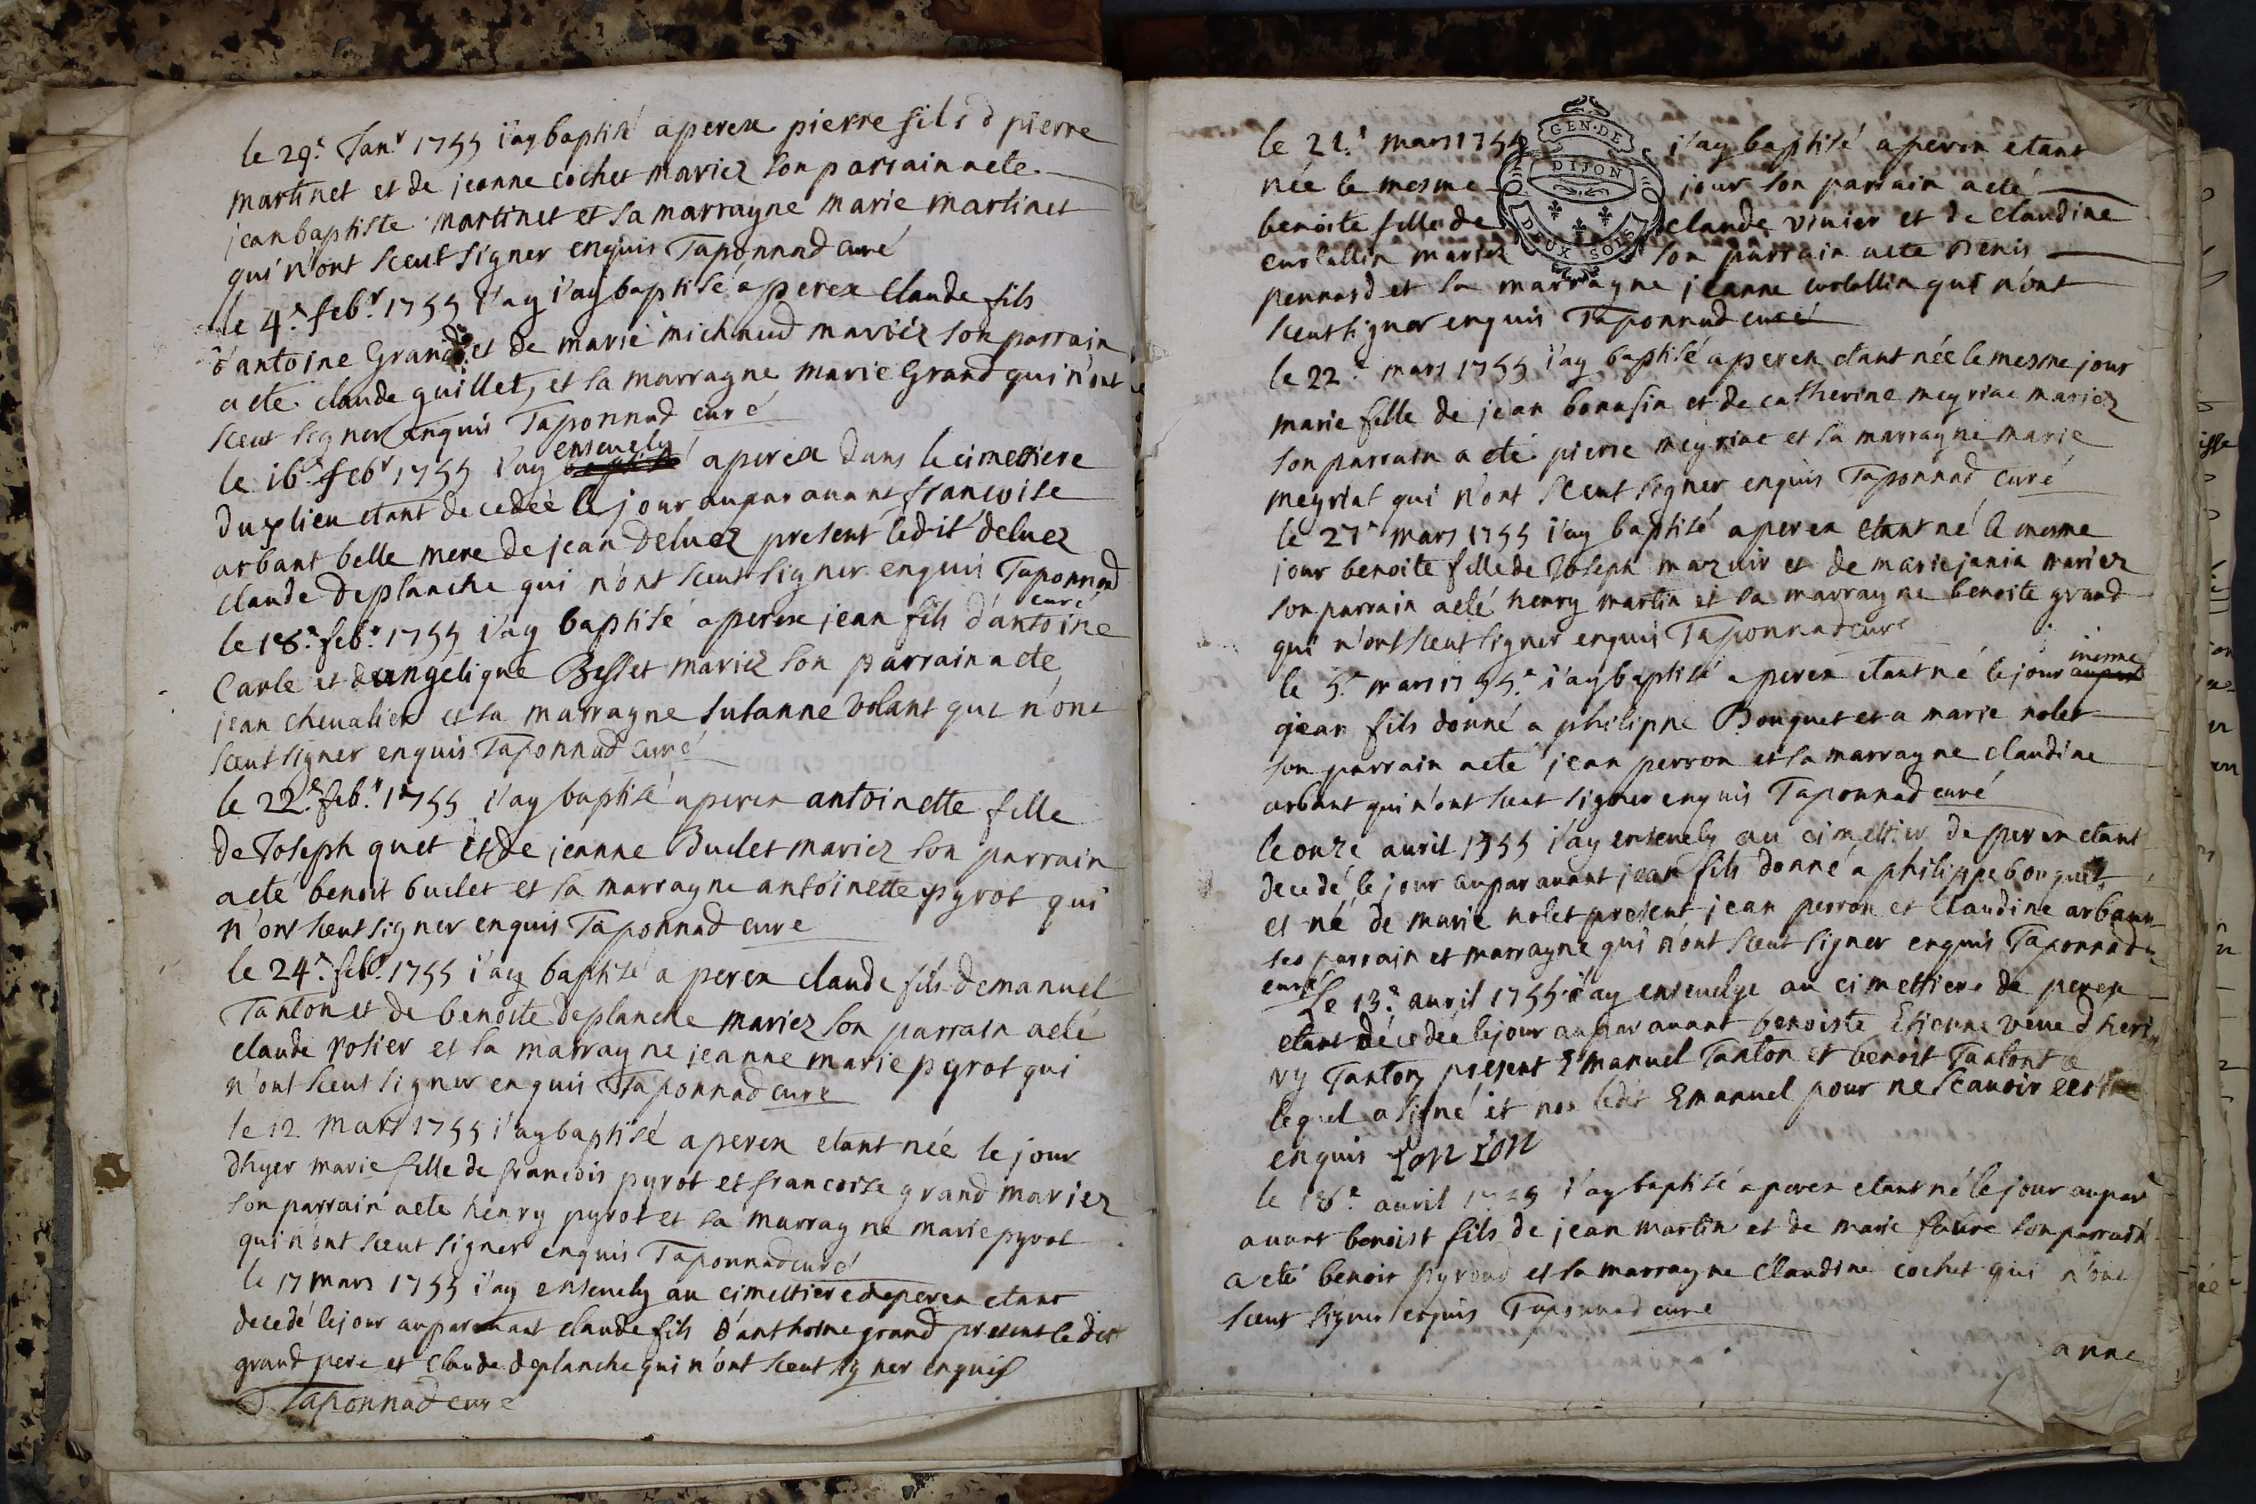 le 29.e Janr 1755 i'ay baptisé a perex pierre fils d pierre
martinet et de jeanne cochet mariez son parrain a ete
jean baptiste martinet et sa marragne marie martinet
qui n'ont sceut signer enquis Taponnad curé
le 4.e febr 1755 i'ay i'ay baptisé a perex claude fils
d'antoine Grand et de marie michaud mariéz son parrain
a eté claude guillet, et sa marragne marie Grand qui n'ont
sceut signer enquis Taponnad curé
ensevely
le 16.e febr 1755 i'ay baptisé a perex dans le cimettiere
du lieu etant decedée le jour auparavant francoise
arbant belle mere de jean Deluez present ledit deluez
claude deplanche qui n'ont sceut signer enquis Taponnad
curé
le 18.e febr 1755 i'ay baptisé a perex jean fils d'antoine
Carle et d'angelique Besset mariez son parrain a ete
jean chevalier et sa marragne susanne volant qui n'ont
sceut signer enquis Taponnad curé
le 22.e febr 1755 i'ay baptisé a perex antoinette fille
de Joseph guet et de jeanne Buclet mariez son parrain
a eté benoit buclet et sa marragne antoinette pyrot qui
n'ont sceut signer enquis Taponnad curé
le 24.e febr 1755 i'ay baptisé a perex claude fils demanuel
Tanton et de benoite deplanche mariez son parrain a eté
claude rosier et sa marragne jeanne marie pyrot qui
n'ont sceut signer enquis Taponnad curé
le 12 mars 1755 i'ay baptisé a perex etant née le jour
dhyer marie fille de francois pyrot et francoise grand mariez
son parrain a ete henry pyrot et sa marragne marie pyrot
qui n'ont sceut signer enquis Taponnad curé
le 17 mars 1755 i'ay ensevely au cimettiere de perex etant
decedé le jour auparavant claude fils d'anthoine grand present le dit
grand pere et claude deplanche qui n'ont sceut signer enquis
Taponnad curé
GEN. DE
DIJON
DEUX SOLS
le 21.e mars 1755 i'ay baptisé a perex etant
née le mesme jour son parrain a eté
benoite fille de claude vinier et de claudine
curtallin mariez son parrain a ete Denis
pennard et sa marragne jeanne curtallin qui n'ont
sceut signer enquis Taponnad curé
le 22.e mars 1755 i'ay baptisé a perex etant née le mesme jour
marie fille de jean bonasin et de catherine meyriac mariez
son parrain a eté pierre meyriac et sa marragne marie
meyriat qui n'ont sceut signer enquis Taponnad curé
le 27.e mars 1755 i'ay baptisé a perex etant né le mesme
jour benoite fille de Joseph mazuir et de marie janin mariez
son parrain a eté henry martin et sa marragne benoite grand
qui n'ont sceut signer enquis Taponnad curé
mesme
le 5.e mars 1755.e i'ay baptisé a perex etant né le jour
jean fils donné a philippe Bouquet et a marie nolet
son parrain a eté jean perron et sa marragne claudine
arbant qui n'ont sceut signer enquis Taponnad curé
le onze avril 1755 i'ay ensevely au cimettier de perex etant
decedé le jour auparavant jean fils donné a philippe bouquet
et né de marie nolet present jean perron et claudine arbant
ses parrain et marragne qui n'ont sceut signer enquis Taponnad
curé
le 13.e avril 1755 i'ay ensevelye au cimettiere de perex
etant décedée le jour auparavant benoiste Etienne veuve d hen
ry Tanton present Emanuel Tanton et benoist Tantont
lequel a signé et non ledit Emanuel pour ne scavoir
enquis
le 18.e avril 1755 i'ay baptisé a perex etant né le jour aupar
avant benoist fils de jean martin et de marie faure son parrain
a eté benoit pyroud et sa marragne Claudine cochet qui n'ont
sceut signer enquis Taponnad curé
anne